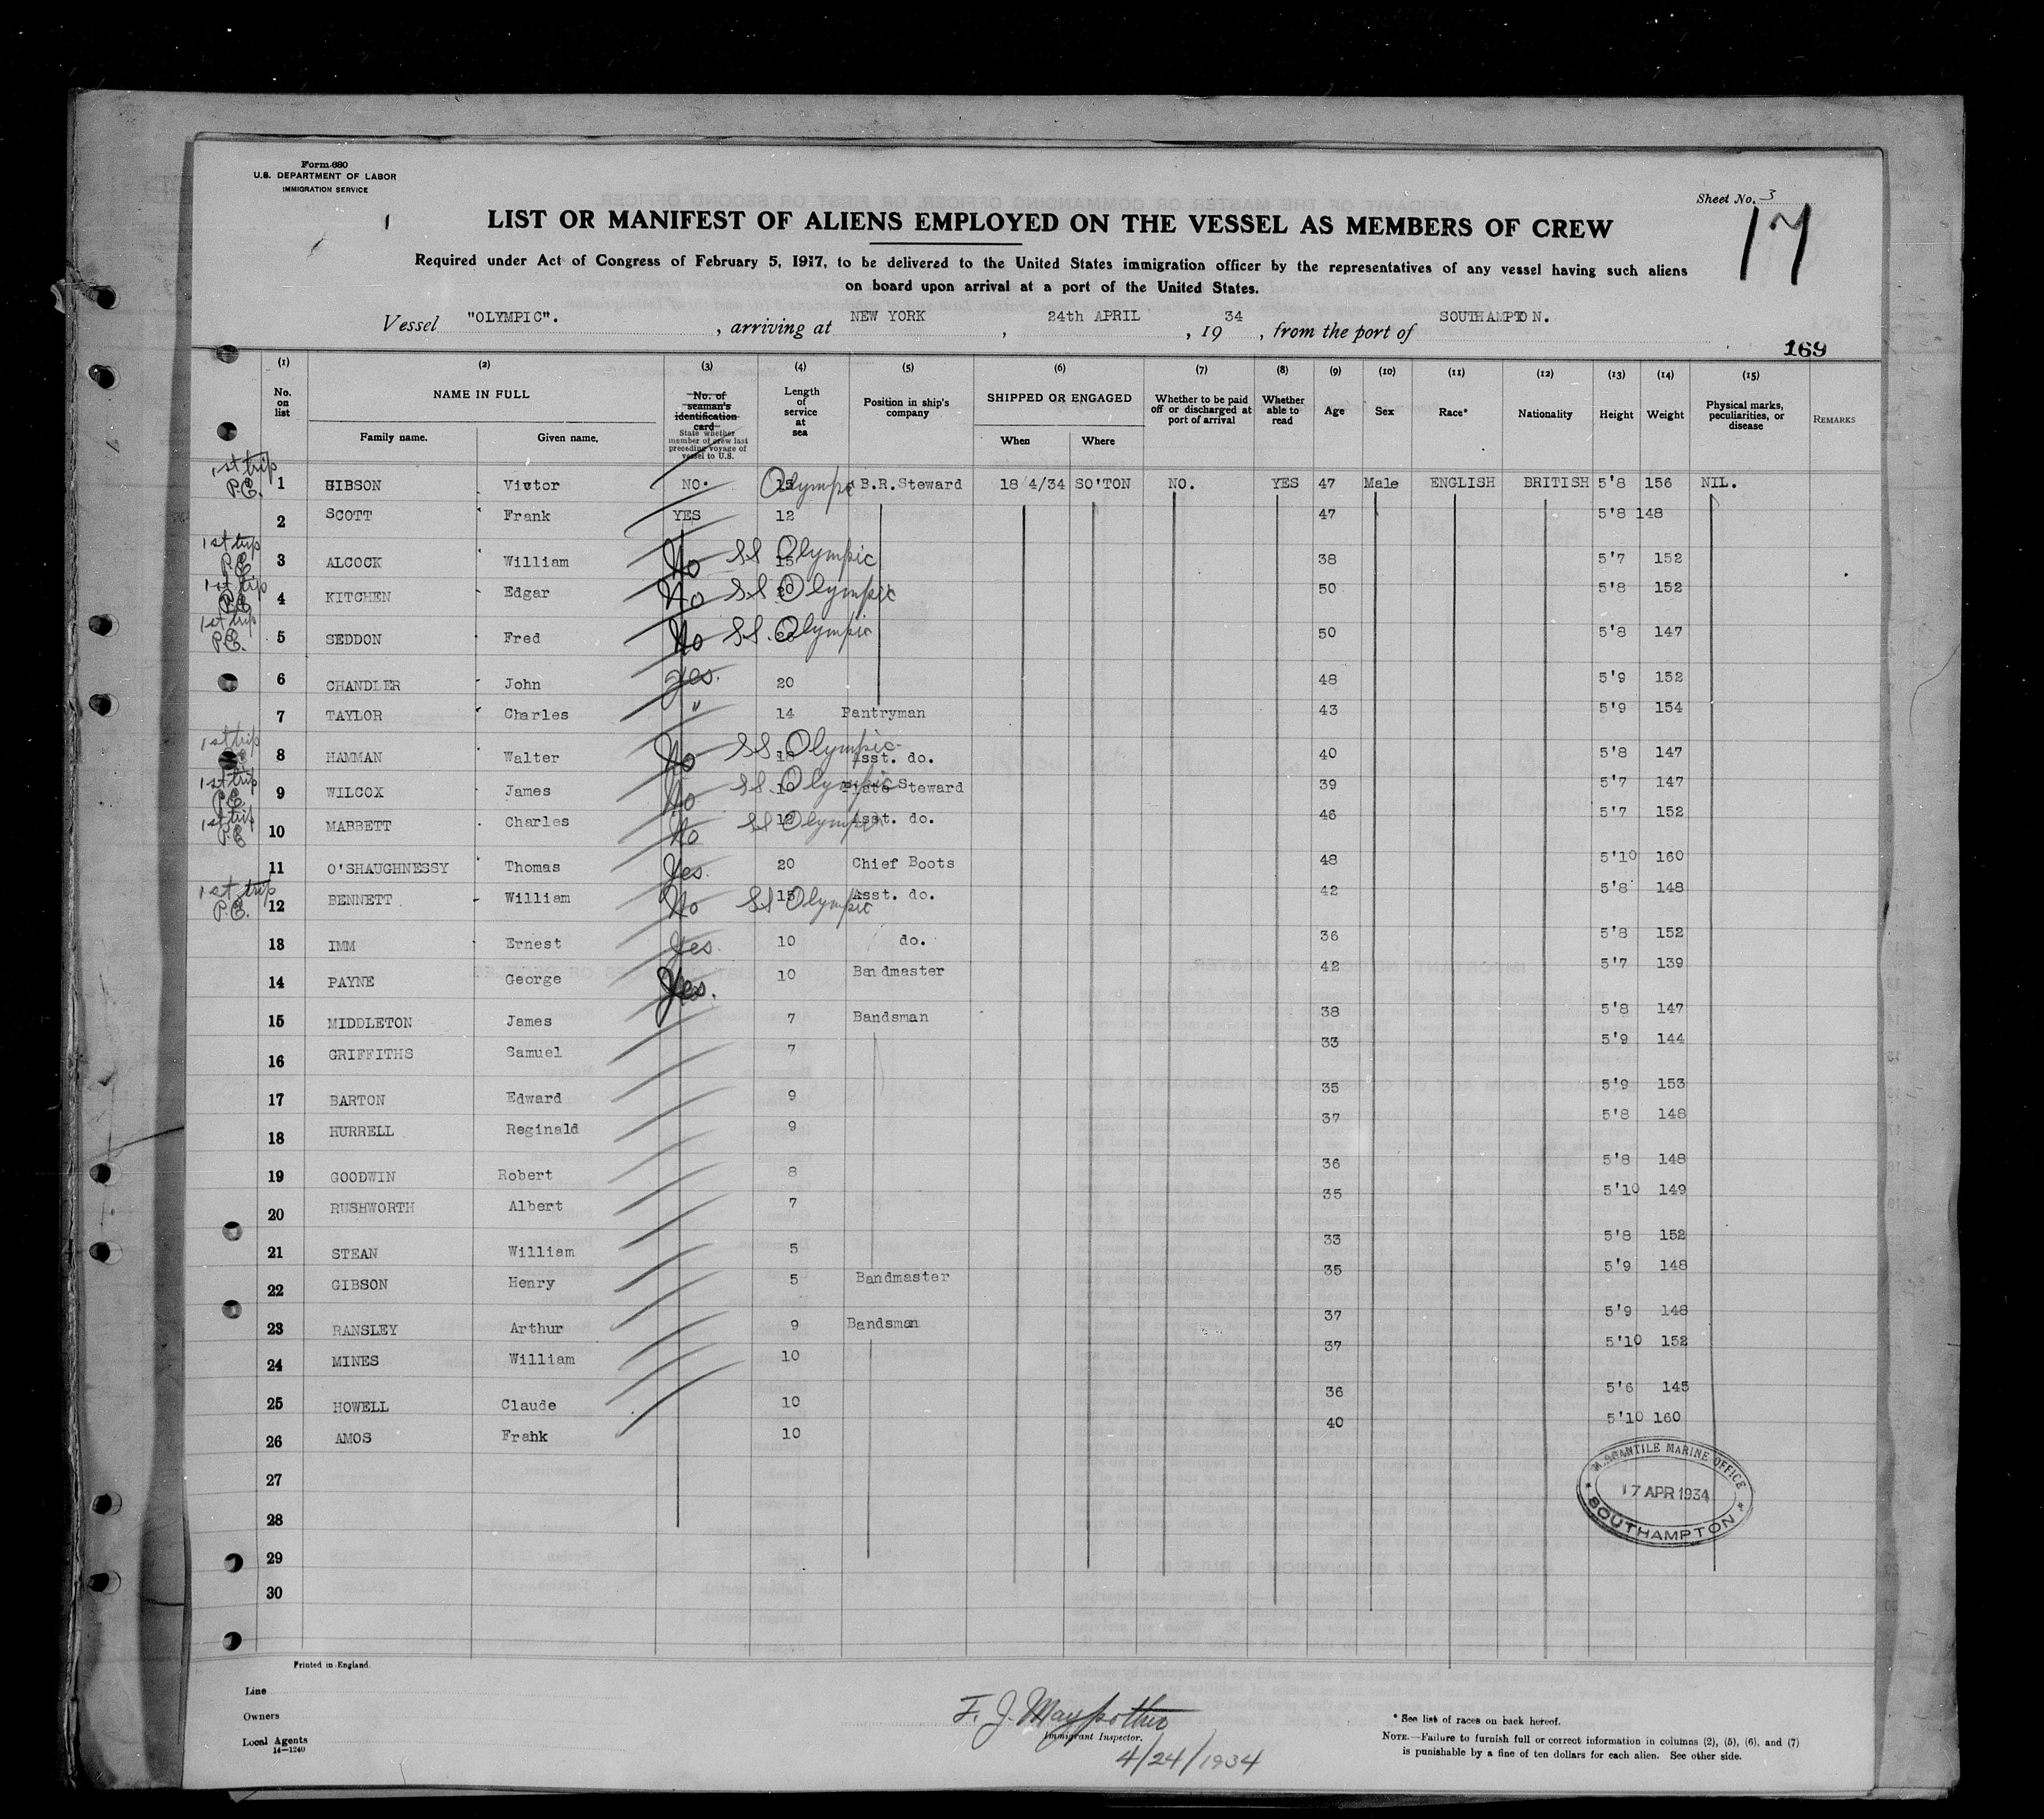 Form 680
U.S. DEPARTMENT OF LABOR
IMMIGRATION SERVICE
Sheet No. 3
17
LIST OR MANIFEST OF ALIENS EMPLOYED ON THE VESSEL AS MEMBERS OF CREW
Required under Act of Congress of February 5, 1917, to be delivered to the United States immigration officer by the representatives of any vessel having such aliens
on board upon arrival at a port of the United States.
Vessel "OLYMPIC". , arriving at NEW YORK , 24th APRIL , 19 34 , from the port of SOUTHAMPTON.
169
(1) (2) (3) (4) (5) (6) (7) (8) (9) (10) (11) (12) (13) (14) (15)
No. on list NAME IN FULL Family name. Given name. No. of seaman's identification card State whether member of crew last preceding voyage of vessel to U.S. Length of service at sea Position in ship's company SHIPPED OR ENGAGED When Where Whether to be paid off or discharged at port of arrival Whether able to read Age Sex Race* Nationality Height Weight Physical marks, peculiarities, or disease REMARKS
1st trip P.E. 1 GIBSON Victor NO. Olympic B.R.Steward 18/4/34 SO'TON NO. YES 47 Male ENGLISH BRITISH 5'8 156 NIL.
2 SCOTT Frank YES 12 47 5'8 148
1st trip P.E. 3 ALCOCK William No SS Olympic 15 38 5'7 152
1st trip P.E. 4 KITCHEN Edgar No SS Olympic 50 5'8 152
1st trip P.E. 5 SEDDON Fred No SS. Olympic 50 5'8 147
6 CHANDLER John Yes. 20 48 5'9 152
7 TAYLOR Charles " 14 Pantryman 43 5'9 154
1st trip 8 HAMMAN Walter No SS Olympic Asst. do. 40 5'8 147
1st trip P.E. 9 WILCOX James No SS. Olympic 10 Plate Steward 39 5'7 147
1st trip P.E. 10 MABBETT Charles No SS Olympic Asst. do. 46 5'7 152
11 O'SHAUGHNESSY Thomas Yes. 20 Chief Boots 48 5'10 160
1st trip P.E. 12 BENNETT William No SS Olympic 15 Asst. do. 42 5'8 148
13 IMM Ernest Yes 10 do. 36 5'8 152
14 PAYNE George Yes. 10 Bandmaster 42 5'7 139
15 MIDDLETON James 7 Bandsman 38 5'8 147
16 GRIFFITHS Samuel 7 33 5'9 144
17 BARTON Edward 9 35 5'9 153
18 HURRELL Reginald 9 37 5'8 148
19 GOODWIN Robert 8 36 5'8 148
20 RUSHWORTH Albert 7 35 5'10 149
21 STEAN William 5 33 5'8 152
22 GIBSON Henry 5 Bandmaster 35 5'9 148
23 RANSLEY Arthur 9 Bandsman 37 5'9 148
24 MINES William 10 37 5'10 152
25 HOWELL Claude 10 36 5'6 145
26 AMOS Frahk 10 40 5'10 160
27
28
29
30
MERCANTILE MARINE OFFICE
17 APR 1934
SOUTHAMPTON
Printed in England.
Line
Owners
Local Agents
14—1240
F. J. Maypother
Immigrant Inspector.
4/24/1934
* See list of races on back hereof.
NOTE.—Failure to furnish full or correct information in columns (2), (5), (6), and (7)
is punishable by a fine of ten dollars for each alien. See other side.